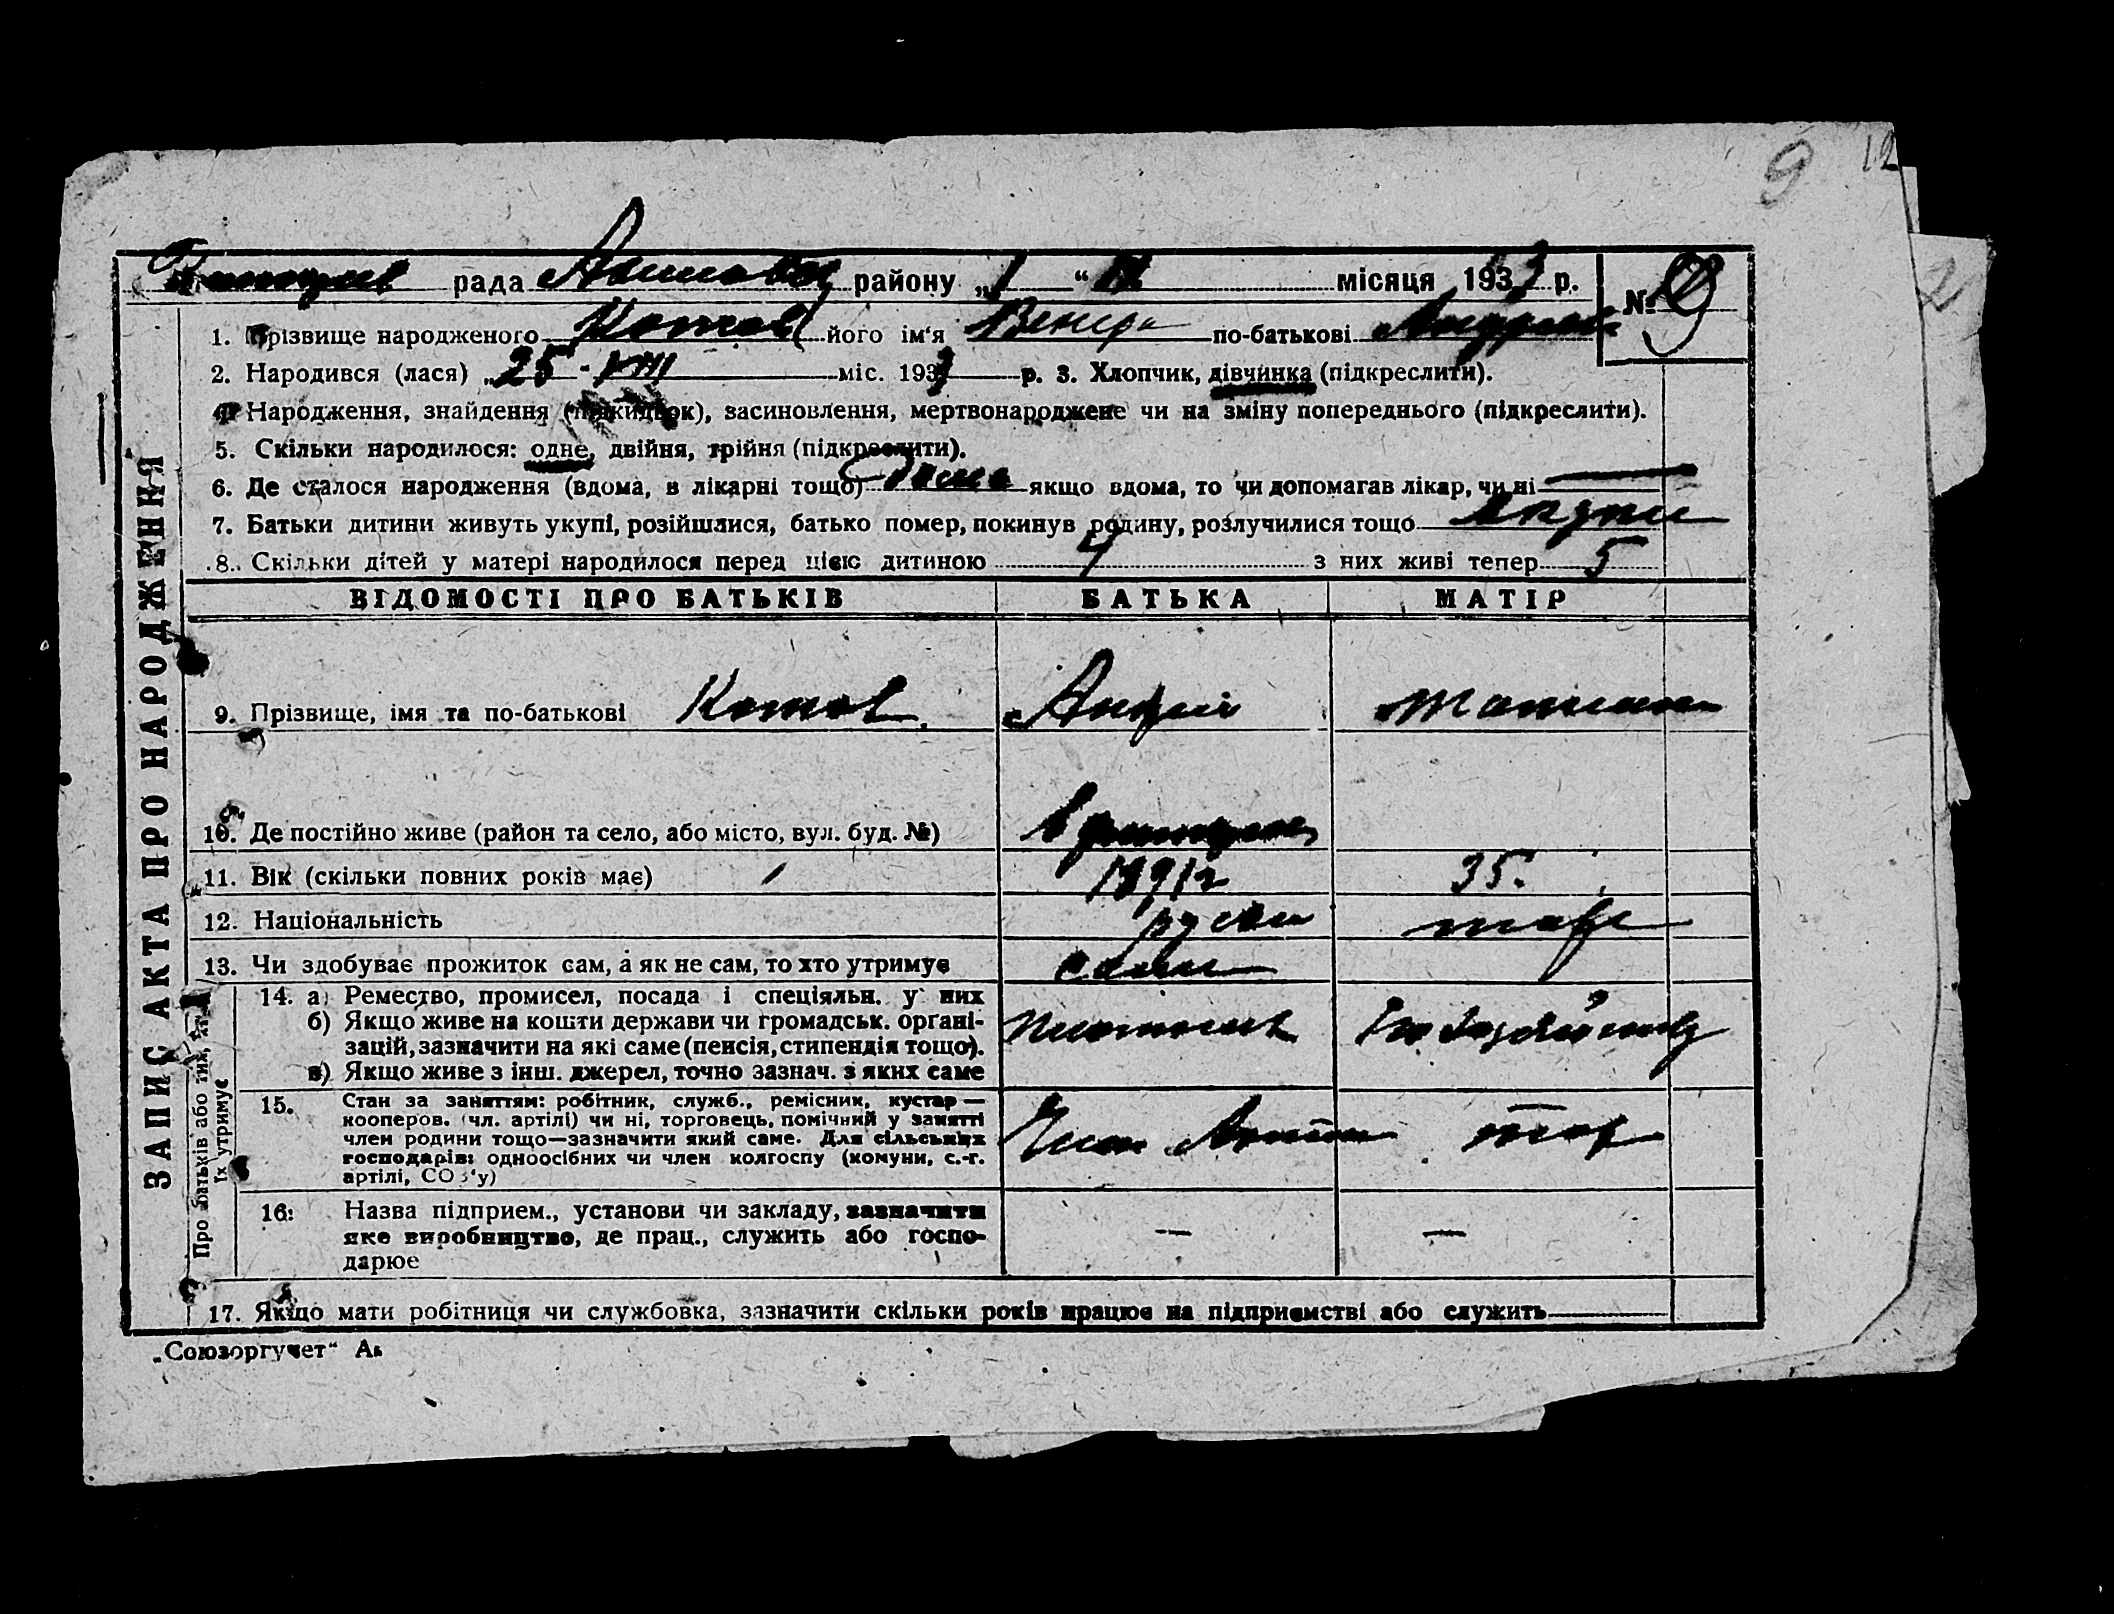 9 12
рада району „1 “ IX місяця 1933 р.
№ 9
1. Прізвище народженого Котов його ім‘я Венера по-батькові
2. Народився (лася) „25 - VIII міс. 1933 р. 3. Хлопчик, дівчинка (підкреслити).
4. Народження, знайдення (підкидьок), засиновлення, мертвонароджене чи на зміну попереднього (підкреслити).
5. Скільки народилося: одне, двійня, трійня (підкреслити).
6. Де сталося народження (вдома, в лікарні тощо) дома якщо вдома, то чи допомагав лікар, чи ні —
7. Батьки дитини живуть укупі, розійшлися, батько помер, покинув родину, розлучилися тощо вкупи
8. Скільки дітей у матері народилося перед цією дитиною 4 з них живі тепер 5
ЗАПИС АКТА ПРО НАРОДЖЕННЯ
ВІДОМОСТІ ПРО БАТЬКІВ БАТЬКА МАТІР
9. Прізвище, імя та по-батькові Котов Андрій
10. Де постійно живе (район та село, або місто, вул. буд. №)
11. Вік (скільки повних років має) 35.
12. Національність руски
13. Чи здобуває прожиток сам, а як не сам, то хто утримує
Про батьків або тих, хто
їх утримує
14. а) Ремество, промисел, посада і спеціяльн. у них
б) Якщо живе на кошти держави чи громадськ. органі-
зацій, зазначити на які саме (пенсія, стипендія тощо).
в) Якщо живе з інш. джерел, точно зазнач. з яких саме
15. Стан за заняттям: робітник, служб., ремісник, кустар —
кооперов. (чл. артілі) чи ні, торговець, помічний у занятті
член родини тощо—зазначити який саме. Для сільських
господарів: одноосібних чи член колгоспу (комуни, с.-г.
артілі, СОЗ‘у)
16. Назва підприєм., установи чи закладу, зазначити
яке виробництво, де прац., служить або госпо-
дарює — —
17. Якщо мати робітниця чи службовка, зазначити скільки років працює на підприємстві або служить
„Союзоргучет“